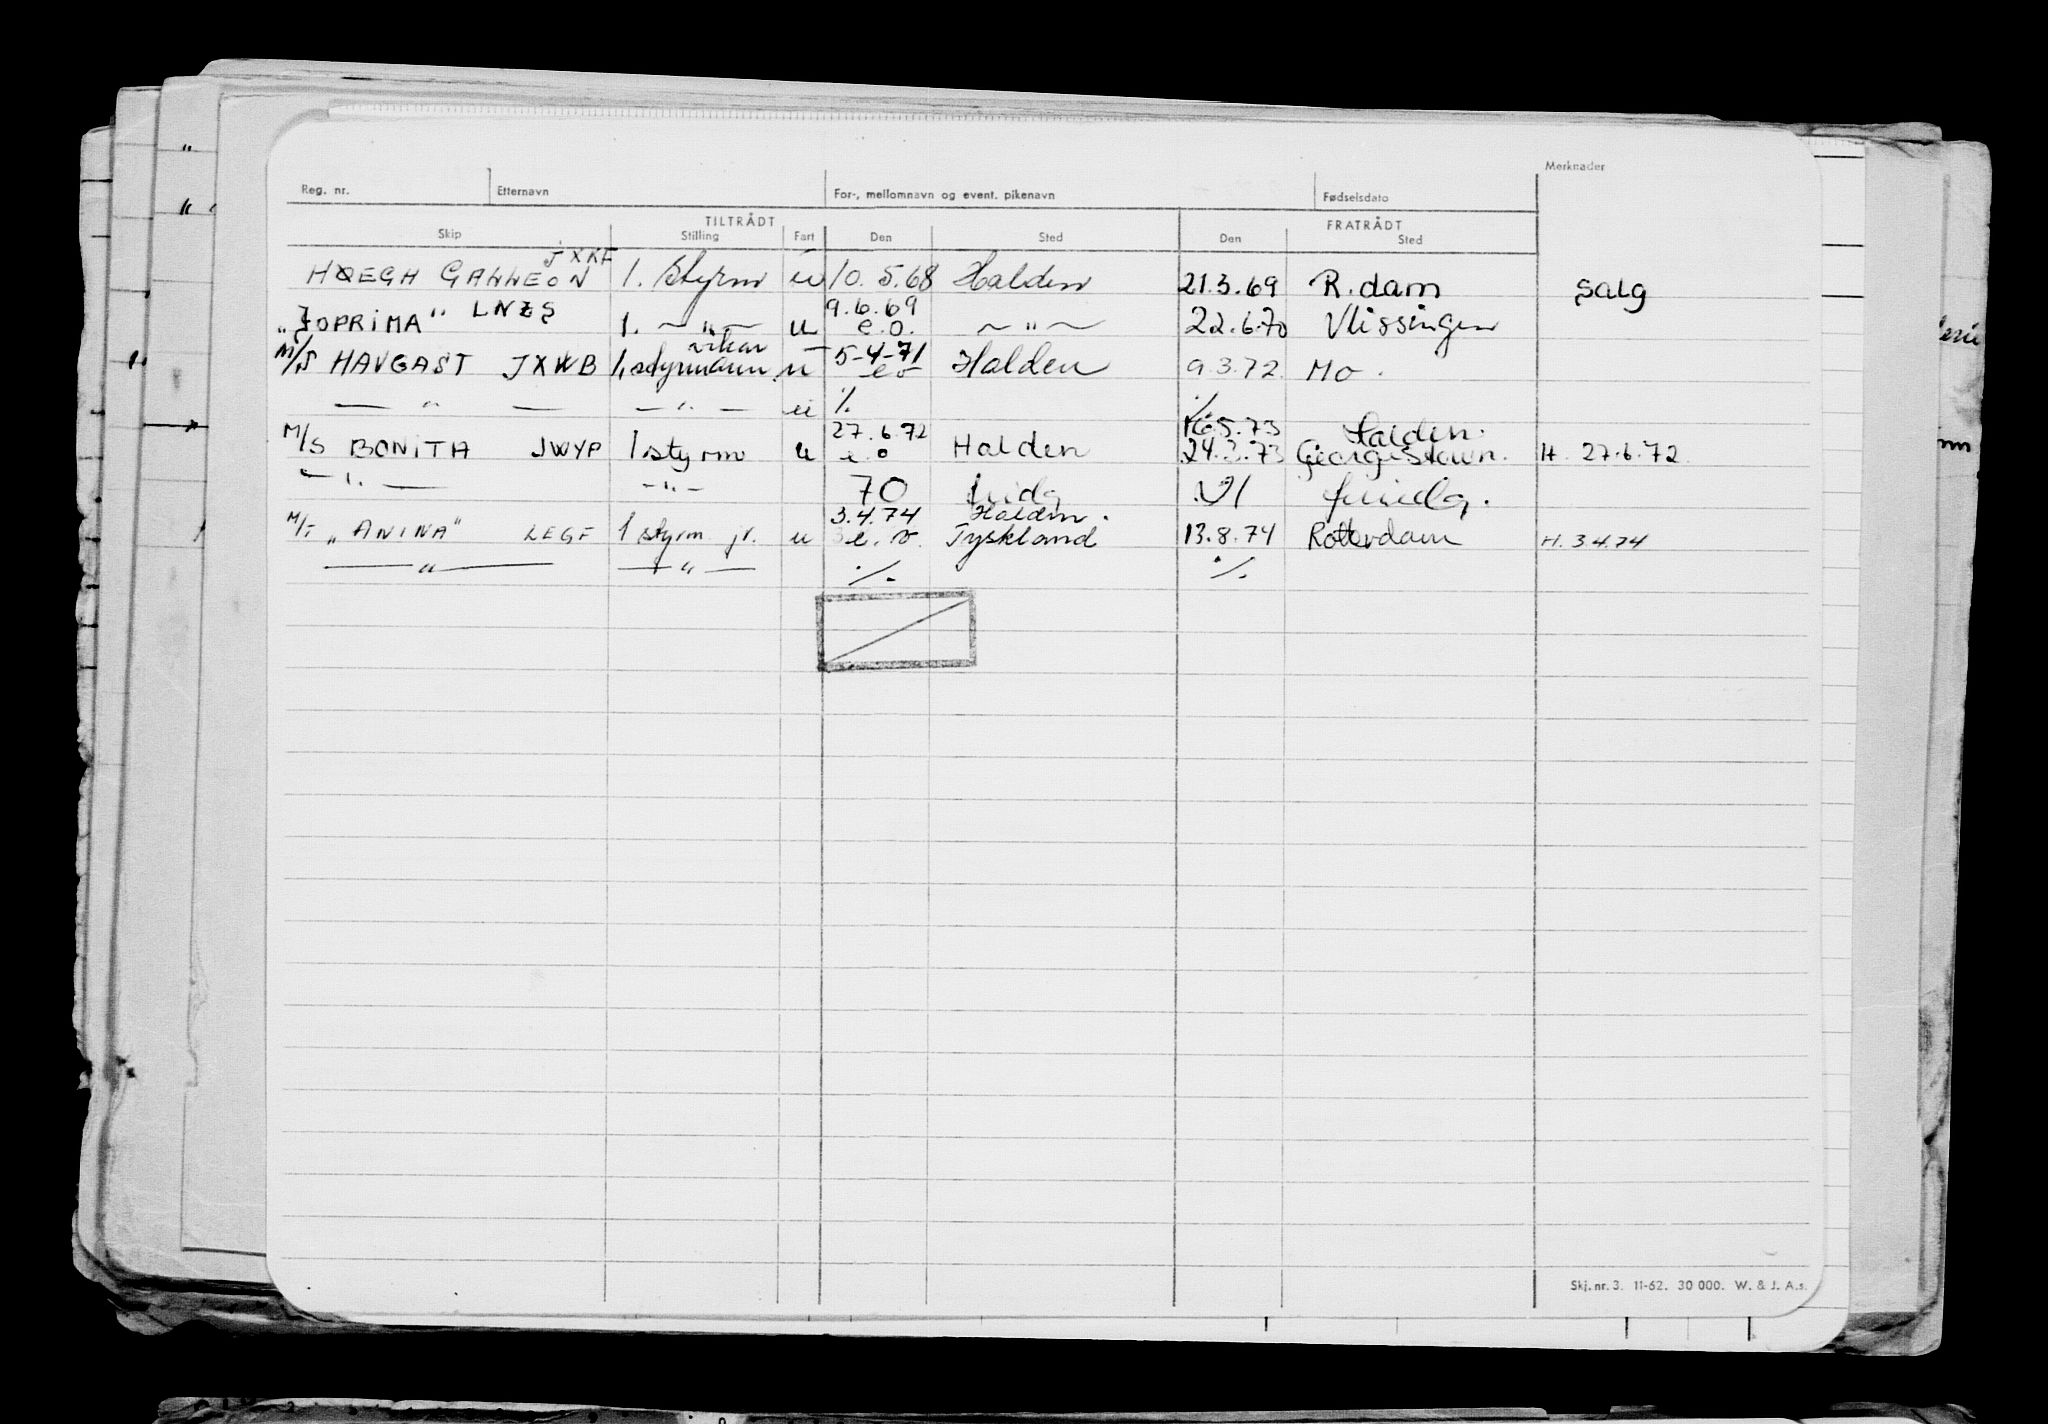 Merknader
Reg. nr. Etternavn For-, mellomnavn og event. pikenavn Fødselsdato
TILTRÅDT FRATRÅDT
Skip Stilling Fart Den Sted Den Sted
JXKF
HØEGH GALLEON 1. Styrm u 10.5.68 Halden 21.3.69 R.dam Salg
LNZS 9.6.69
"JOPRIMA" 1. — " — u e.o. — " — 22.6.70 Vlissingen
vikar 5-4-71
M/S HAVGAST JXWB 1. styrmann u eo Halden 9.3.72 Mo.
— " — — — " — u ./. ./.
27.6.72 16.5.73 Halden.
M/S BONITA JWYP 1 styrm u e.o Halden 24.3.73 Georgestown. H. 27.6.72
— " — — " — 70
3.4.74 Halden.
M/T "ANINA" LEGF 1 styrm jr. u e.o. Tyskland 13.8.74 Rotterdam H. 3.4.74
— " — — " — ./. ./.
Skj. nr. 3. 11-62. 30 000. W. & J. A.s.